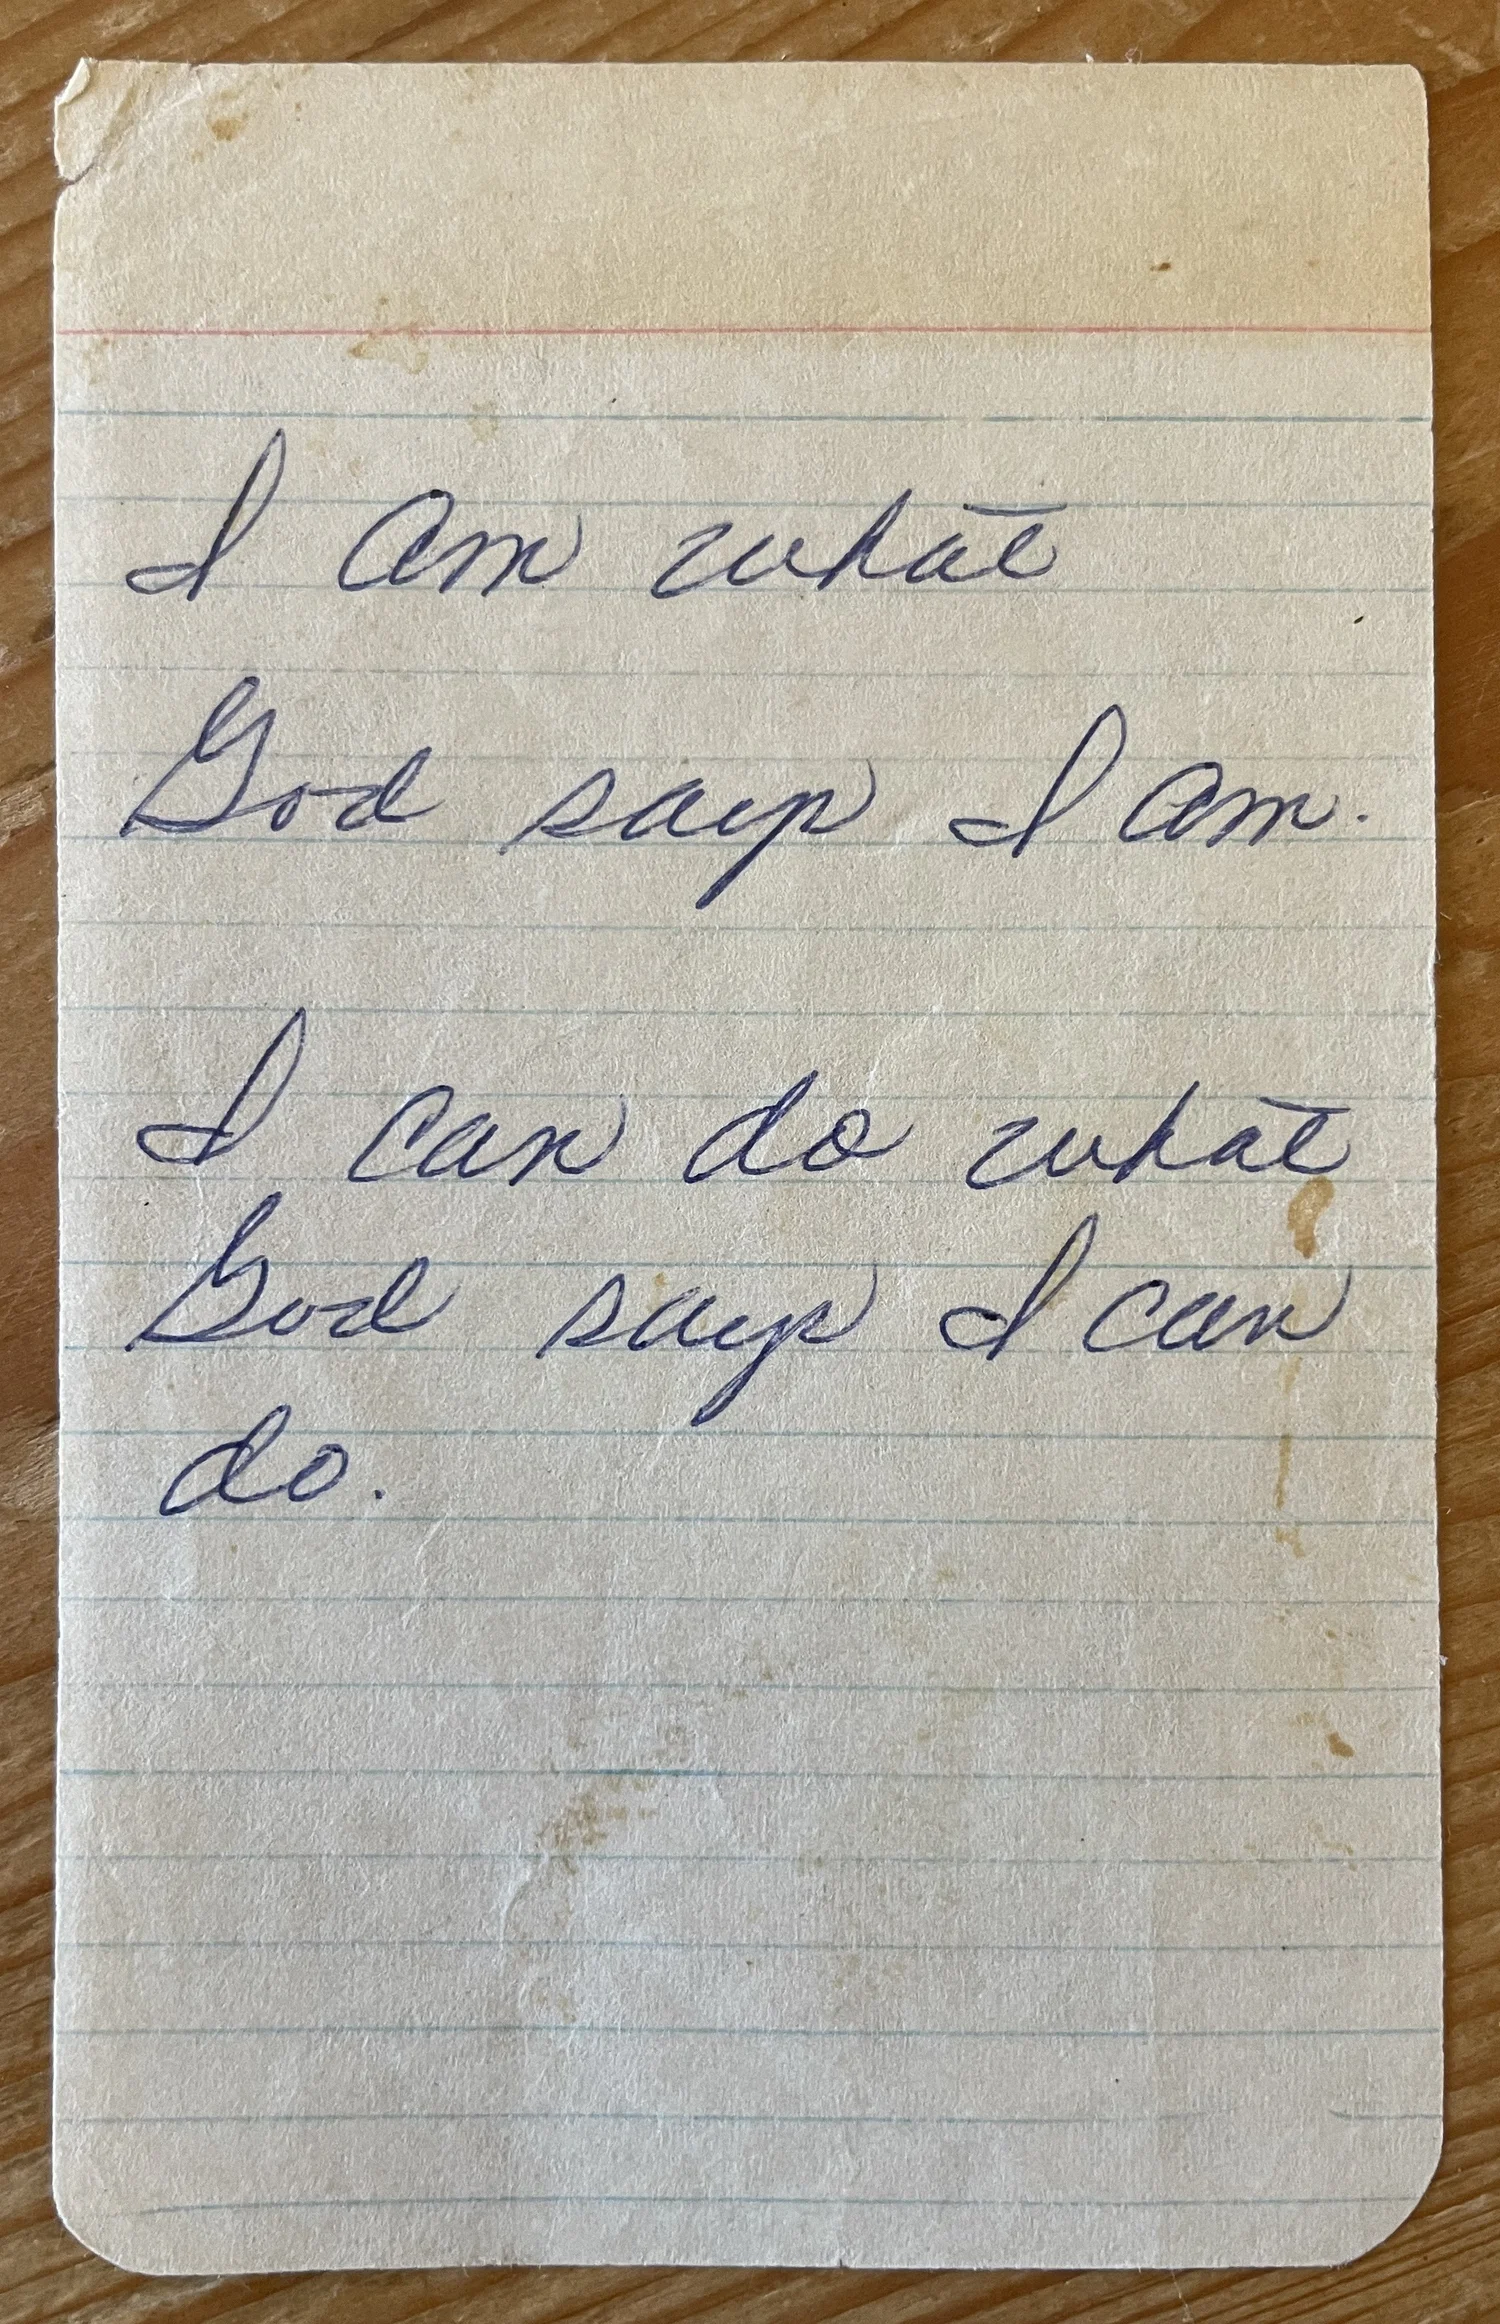 I am what
God says I am.
I can do what
God says I can
do.